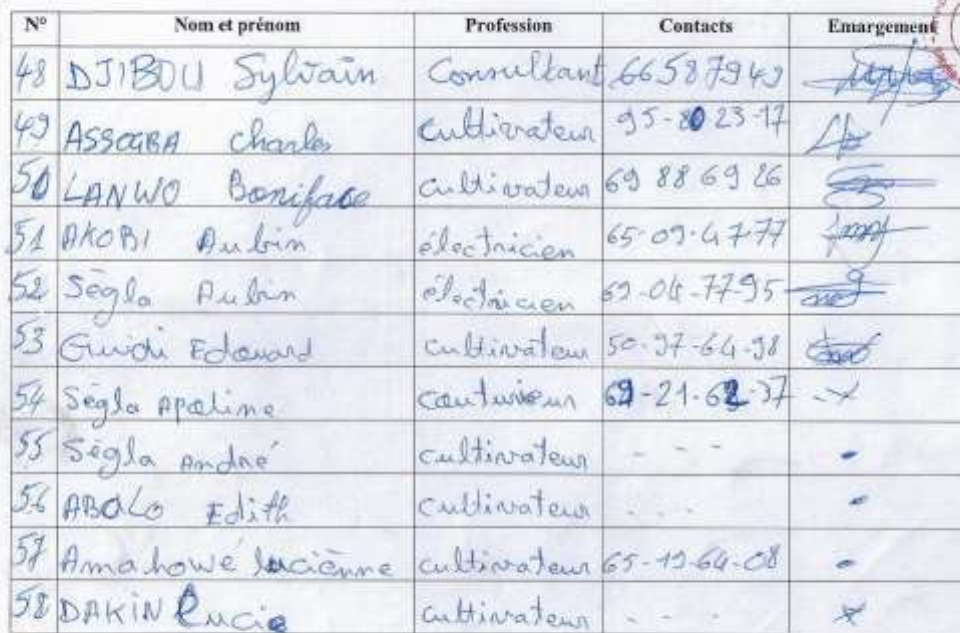 N° Nom et prénom Profession Contacts Emargement
48 DJIBOU Sylvain Consultant 66587949
49 ASSOGBA Charles Cultivateur 95-80 23-17
50 LANWO Boniface Cultivateur 69 88 69 26
51 AKOBI Aubin électricien 65-09-47-77
52 Sègla Aubin électricien 69-04-77-95
53 Guidi Edouard cultivateur 50-97-64-98
54 Sègla Apoline couturieur 69-21-62-37
55 Sègla André cultivateur - - -
56 ABALO Edith cultivateur - - -
57 Amahowé luciènne cultivateur 65-19-64-08
58 DAKIN Lucie cultivateur - - -